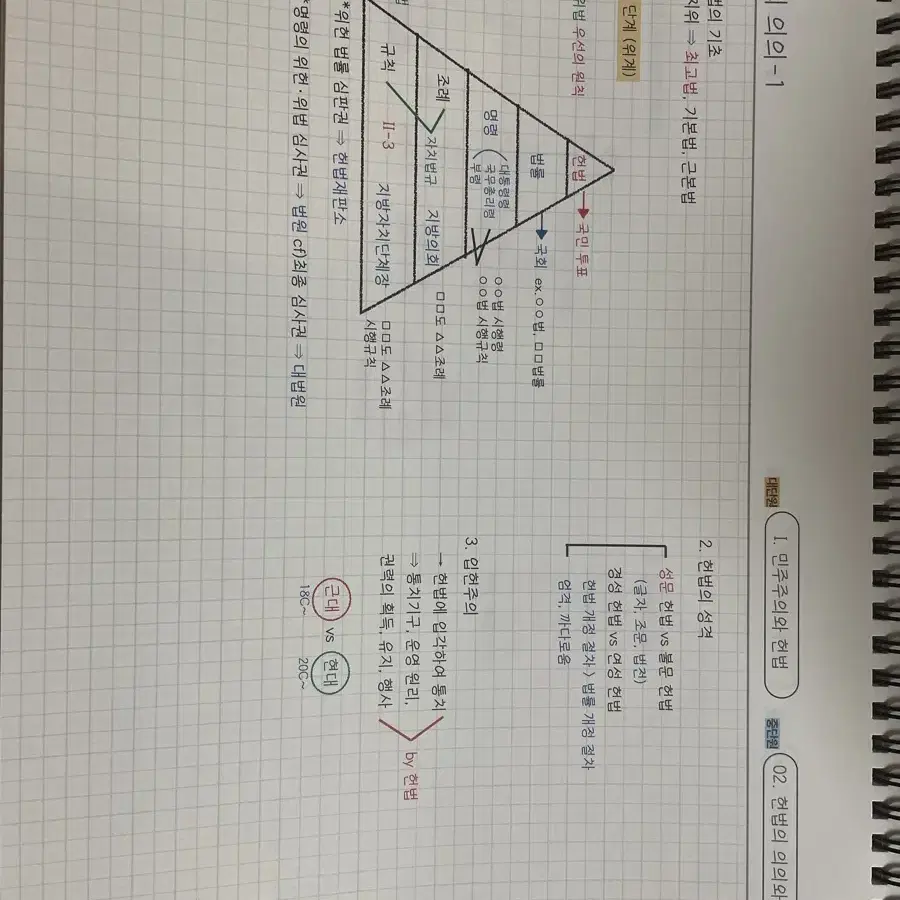 의 의의-1
대단원
I. 민주주의와 헌법
중단원
02. 헌법의 의의와
법의 기초
지위 ⇒ 최고법, 기본법, 근본법
단계 (위계)
위법 우선의 원칙
헌법 → 국민 투표
법률 → 국회 ex. ○○법, □□법률
명령 (대통령령
국무총리령
부령
○○법 시행령
○○법 시행규칙
조례 > 자치법규 지방의회 □□도 △△조례
규칙 II-3 지방자치단체장 □□도 △△조례
시행규칙
*위헌 법률 심판권 ⇒ 헌법재판소
*명령의 위헌·위법 심사권 ⇒ 법원 cf)최종 심사권 ⇒ 대법원
2. 헌법의 성격
성문 헌법 vs 불문 헌법
(글자, 조문, 법전)
경성 헌법 vs 연성 헌법
헌법 개정 절차 > 법률 개정 절차
엄격, 까다로움
3. 입헌주의
→ 헌법에 입각하여 통치
⇒ 통치기구, 운영 원리,
권력의 획득, 유지, 행사
by 헌법
근대 vs 현대
18C~ 20C~